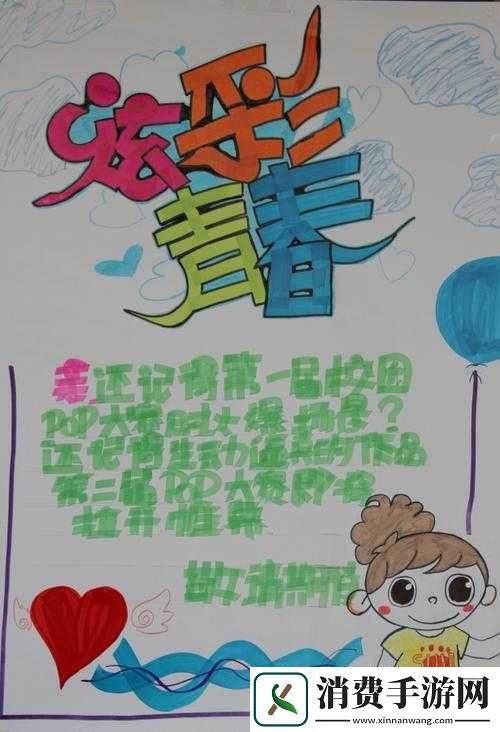 炫彩
青春
亲还记得第一届校园
POP大赛的火爆场景?
还记得生动逼真的作品
第二届POP大赛即将
拉开帷幕
敬请期待
消费手游网
www.xinnanwang.com